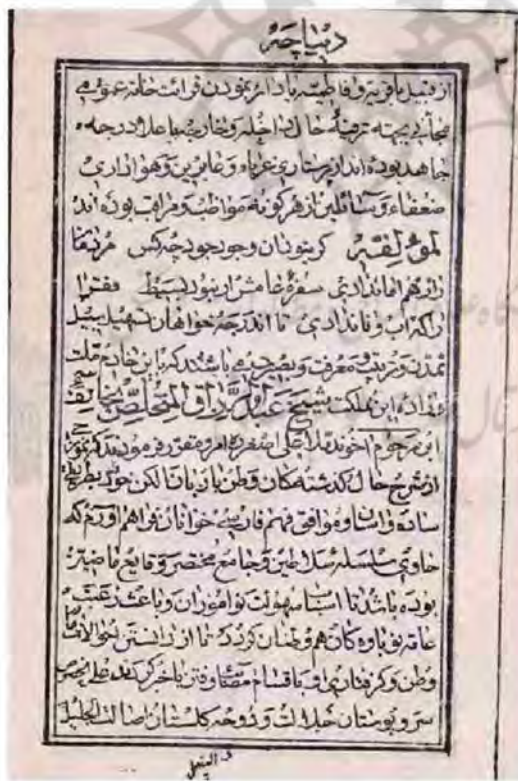 دیباچه
۲
از قبیل باقریه و فاطمیه با دائر نمودن قرائت خانه عمومی
مجاناً بجهته ترفیهٔ حال داخله و خارجه باعلا درجه
جاهد بوده اند از پرستاری غرباء و عابرین و هواداری
ضعفاء و سائلین از هرگونه مواظب و مراقب بوده اند
لمؤلفه گر بنودان وجود جود چه کس مردما
راز هم امان دادی سفرهٔ عامش ار نبود بسیط فقرا
را که آب و نان دادی تا اندرجه خواهان تسهیل سبیل
تمدن و تربیت معرفت و بصیرت می باشند که باین خادم ملت
و زاده این مملکت شیخ عبد الرزاق المتخلص
ابن مرحوم آخوند ملا علی اصغر امر و مقرر فرمودند که
از شرح حال گذشته کان وطن با زبان لکن خود بطریق
ساده و آسان موافق فهم فارسی خوانان فراهم آوردم که
حاوی سلسله سلاطین و جامع مختصر وقایع ماضیه
بوده باشد تا اسباب سهولت نوآموزان و باعث رغبت
عامه نوباوه کان هم وطنان گردد تا از دانستن
وطن و گرفتاری او باقسام و فتن باخبر گردند
سرو بوستان جلالت و دوحه گلستان اصالت الجلیل